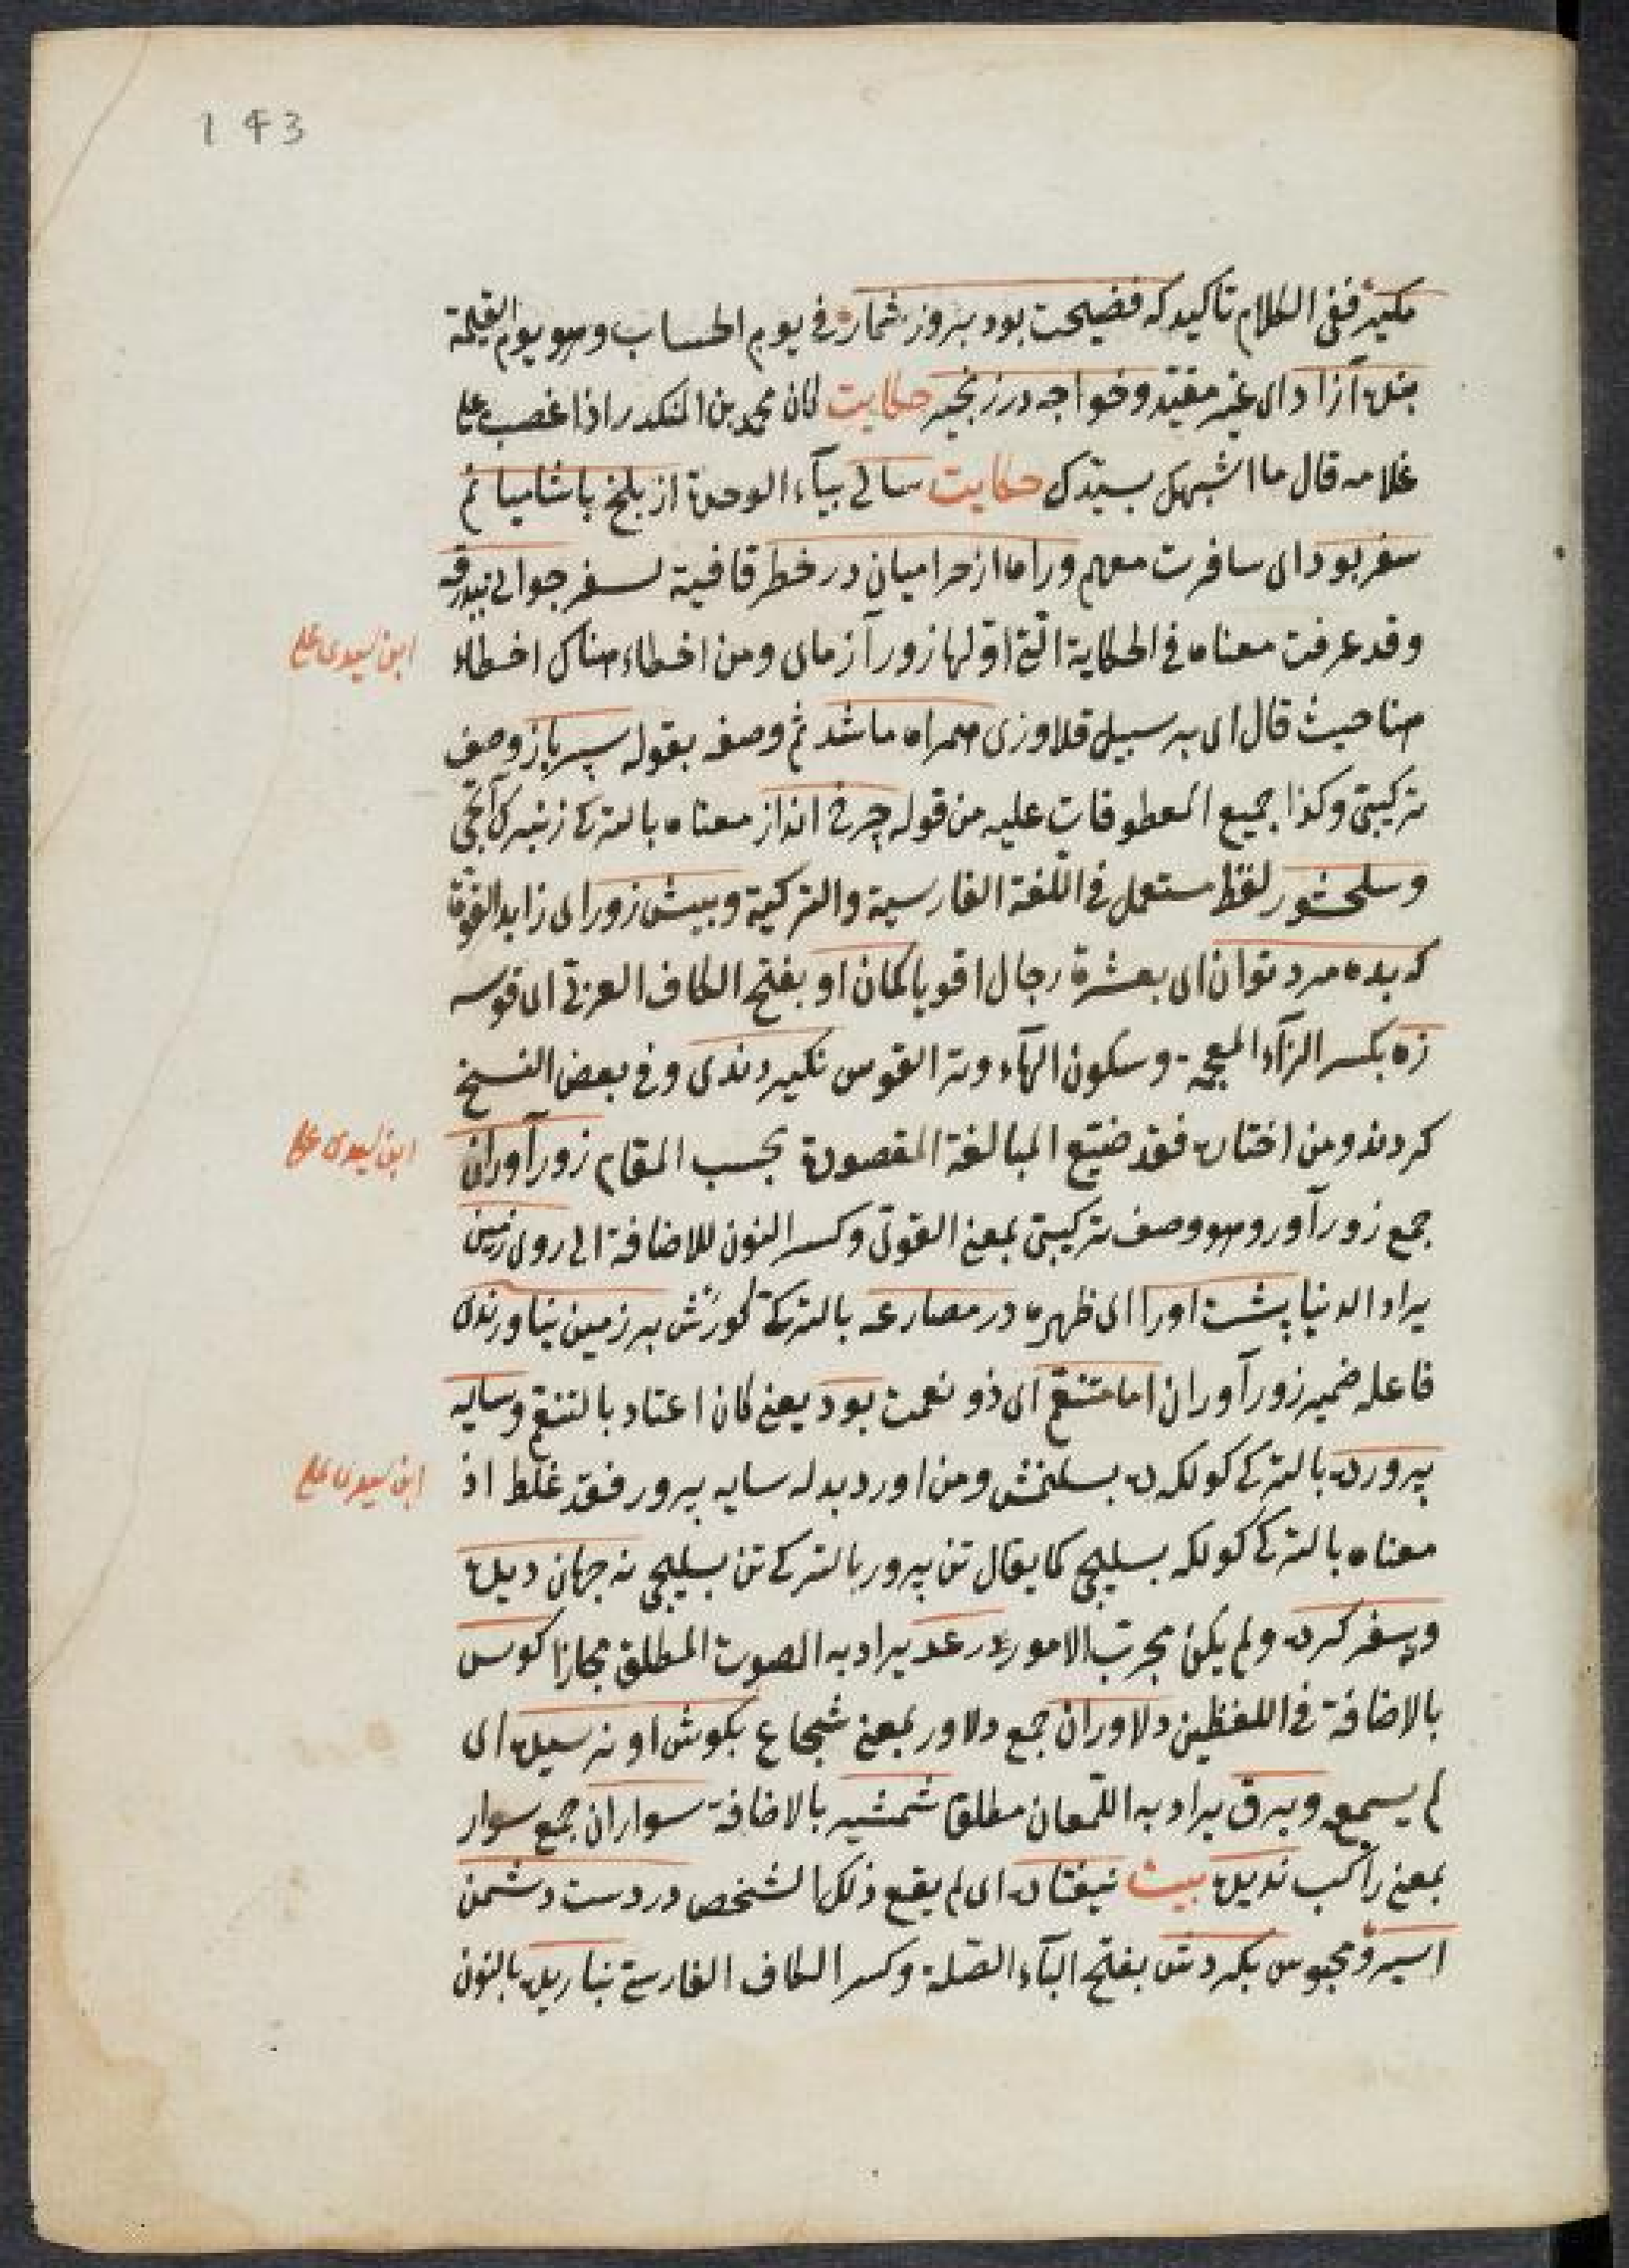 143
مكير ففى الكلام تاكيد كه فضيحت بود بروز شمار فى يوم الحساب وهو يوم القيمة
بنده آزاد اى غير مقيد وخواجه در زنجير حكايت كان محمد بن المنكدر اذا غضب على
غلامه قال ما اشبهك بسيدك حكايت سالى بياء الوحدة از بلخ با شاميانم
سفر بود اى سافرت معهم وراه از حراميان در خطر قافية لسفر جوانى ببدرقه
وقد عرفت معناه فى الحكاية التى اولها زور آزماى ومن اخطاء هناك اخطاء
ابن سيدى على
هنا حيث قال اى بر سبيل قلاوزى همراه ما شد ثم وصفه بقوله سپرباز وصف
تركيبى وكذا جميع المعطوفات عليه من قوله چرخ انداز معناه بالتركى زنبرك آتجى
وسلحشور لفظ مستعمل فى اللغة الفارسية والتركية وبيش زور اى زايد القوة
كه بده مرد توانا اى بعشرة رجال اقويا كمان او بفتح الكاف العربى اى قوسه
زه بكسر الزاء المعجمة وسكون الهاء وتر القوس نكردندى وفى بعض النسخ
كردند ومن اختاره فقد ضيع المبالغة المقصودة بحسب المقام زور آوران
ابن سيدى على
جمع زور آور وهو وصف تركيبى بمعنى القوى وكسر النون للاضافة الى روى زمين
يراد الدنيا پشت اورا اى ظهره در مصارعه بالتركى كورش بر زمين نياوردندى
فاعله ضمير زور آوران اما متنعم اى ذو نعمت بود يعنى كان اعتاد بالتنعم وسايه
پرورده بالتركى كولكه ده بسلنمش ومن اورد بدله سايه پرور فقد غلط اذ
ابن سيدى على
معناه بالتركى كولكه بسليجى كما يقال تن پرور بالتركى تن بسليجى نه جهان ديده
وسفر كرده ولم يكن مجرب الامور رعد يراد به الصوت المطلق مجازا كوس
بالاضافة فى اللفظين دلاوران جمع دلاور بمعنى شجاع بكوش او نرسيده اى
لم يسمع وبرق يراد به اللمعان مطلقا شمشير بالاضافة سواران جمع سوار
بمعنى راكب نديده بيت نيفتاده اى لم يقع ذلك الشخص در دست دشمن
اسير محبوس بكردش بفتح الباء الصلة وكسر الكاف الفارسى نباريده بالنون